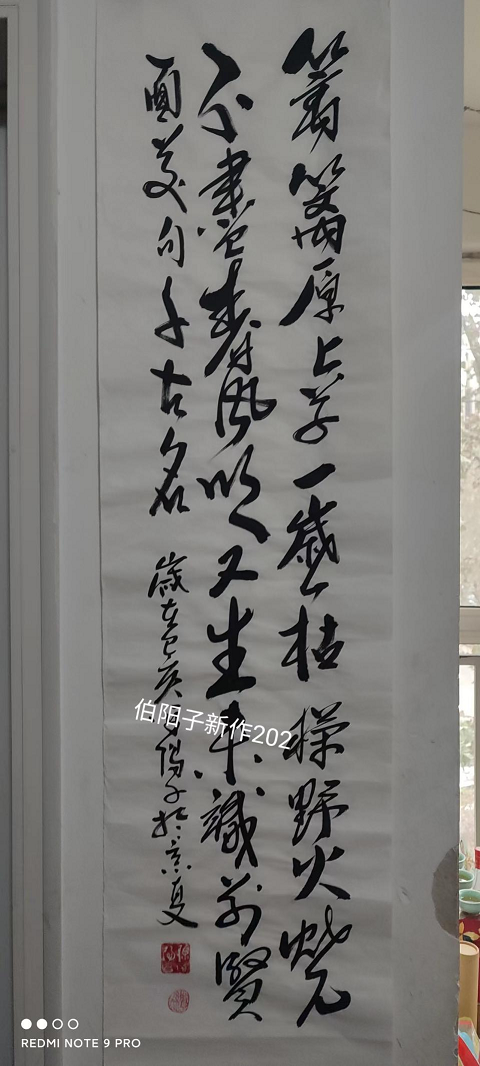 篱篱原上草一歲一枯榮野火燒
不盡春風吹又生未識前賢
面美句千古名
歲在己亥 陽子於京夏
伯阳子新作202
REDMI NOTE 9 PRO